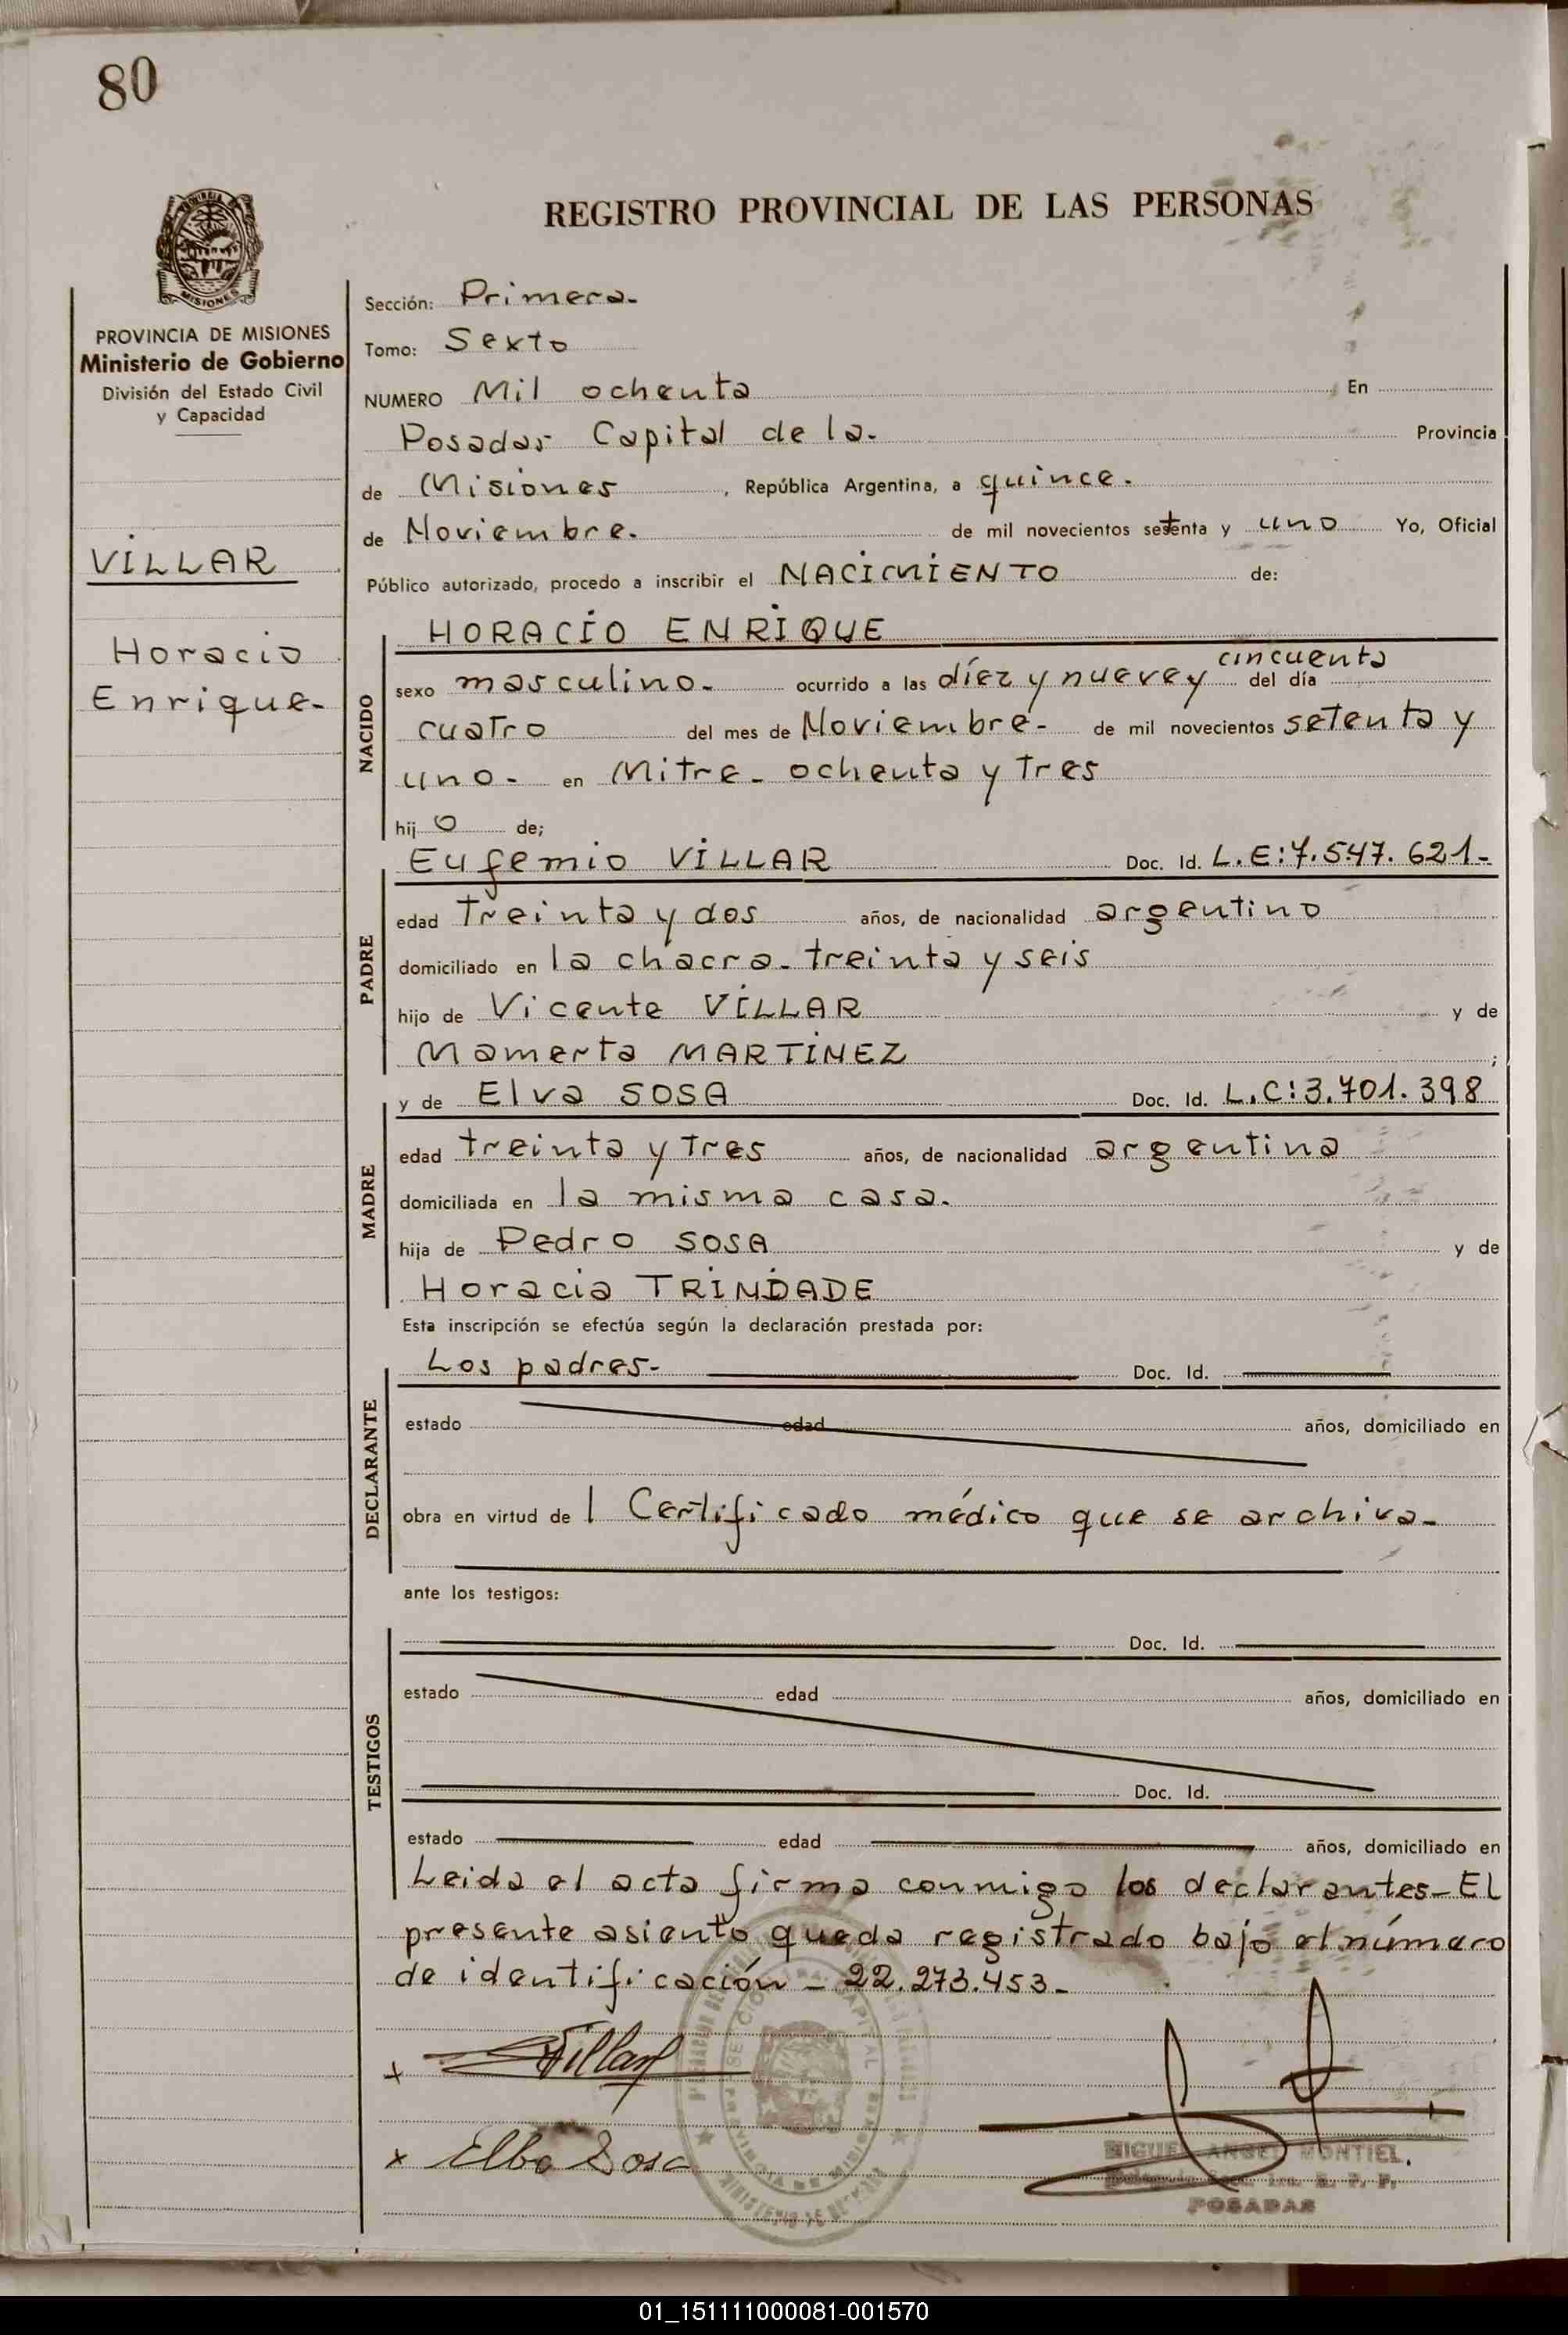 80
REGISTRO PROVINCIAL DE LAS PERSONAS
MISIONES
PROVINCIA DE MISIONES
Ministerio de Gobierno
División del Estado Civil
y Capacidad
VILLAR
Horacio
Enrique-
Sección: Primera-
Tomo: Sexto
NUMERO Mil ochenta En
Posadas Capital de la. Provincia
de Misiones, República Argentina, a quince.
de Noviembre. de mil novecientos setenta y uno Yo, Oficial
Público autorizado, procedo a inscribir el NACIMIENTO de:
NACIDO
HORACIO ENRIQUE
cincuenta
sexo masculino- ocurrido a las díez y nueve y del día
cuatro del mes de Noviembre- de mil novecientos setenta y
uno- en Mitre- ochenta y tres
hijo de;
PADRE
Eufemio VILLAR Doc. Id. L.E:7.547.621-
edad treinta y dos años, de nacionalidad argentino
domiciliado en la chacra- treinta y seis
hijo de Vicente VILLAR y de
Mamerta MARTINEZ ;
MADRE
y de Elva SOSA Doc. Id. L.C:3.701.398
edad treinta y tres años, de nacionalidad argentina
domiciliada en la misma casa.
hija de Pedro SOSA y de
Horacia TRINDADE
Esta inscripción se efectúa según la declaración prestada por:
DECLARANTE
Los padres- Doc. Id.
estado edad años, domiciliado en
obra en virtud de l Certificado médico que se archiva-
ante los testigos:
TESTIGOS
Doc. Id.
estado edad años, domiciliado en
Doc. Id.
estado edad años, domiciliado en
Leida el acta firma conmigo los declarantes- El
presente asiento queda registrado bajo el número
de identificación - 22.273.453-
x Villar
x Elba Sosa
MIGUEL ANGEL MONTIEL.
POSADAS
01_151111000081-001570